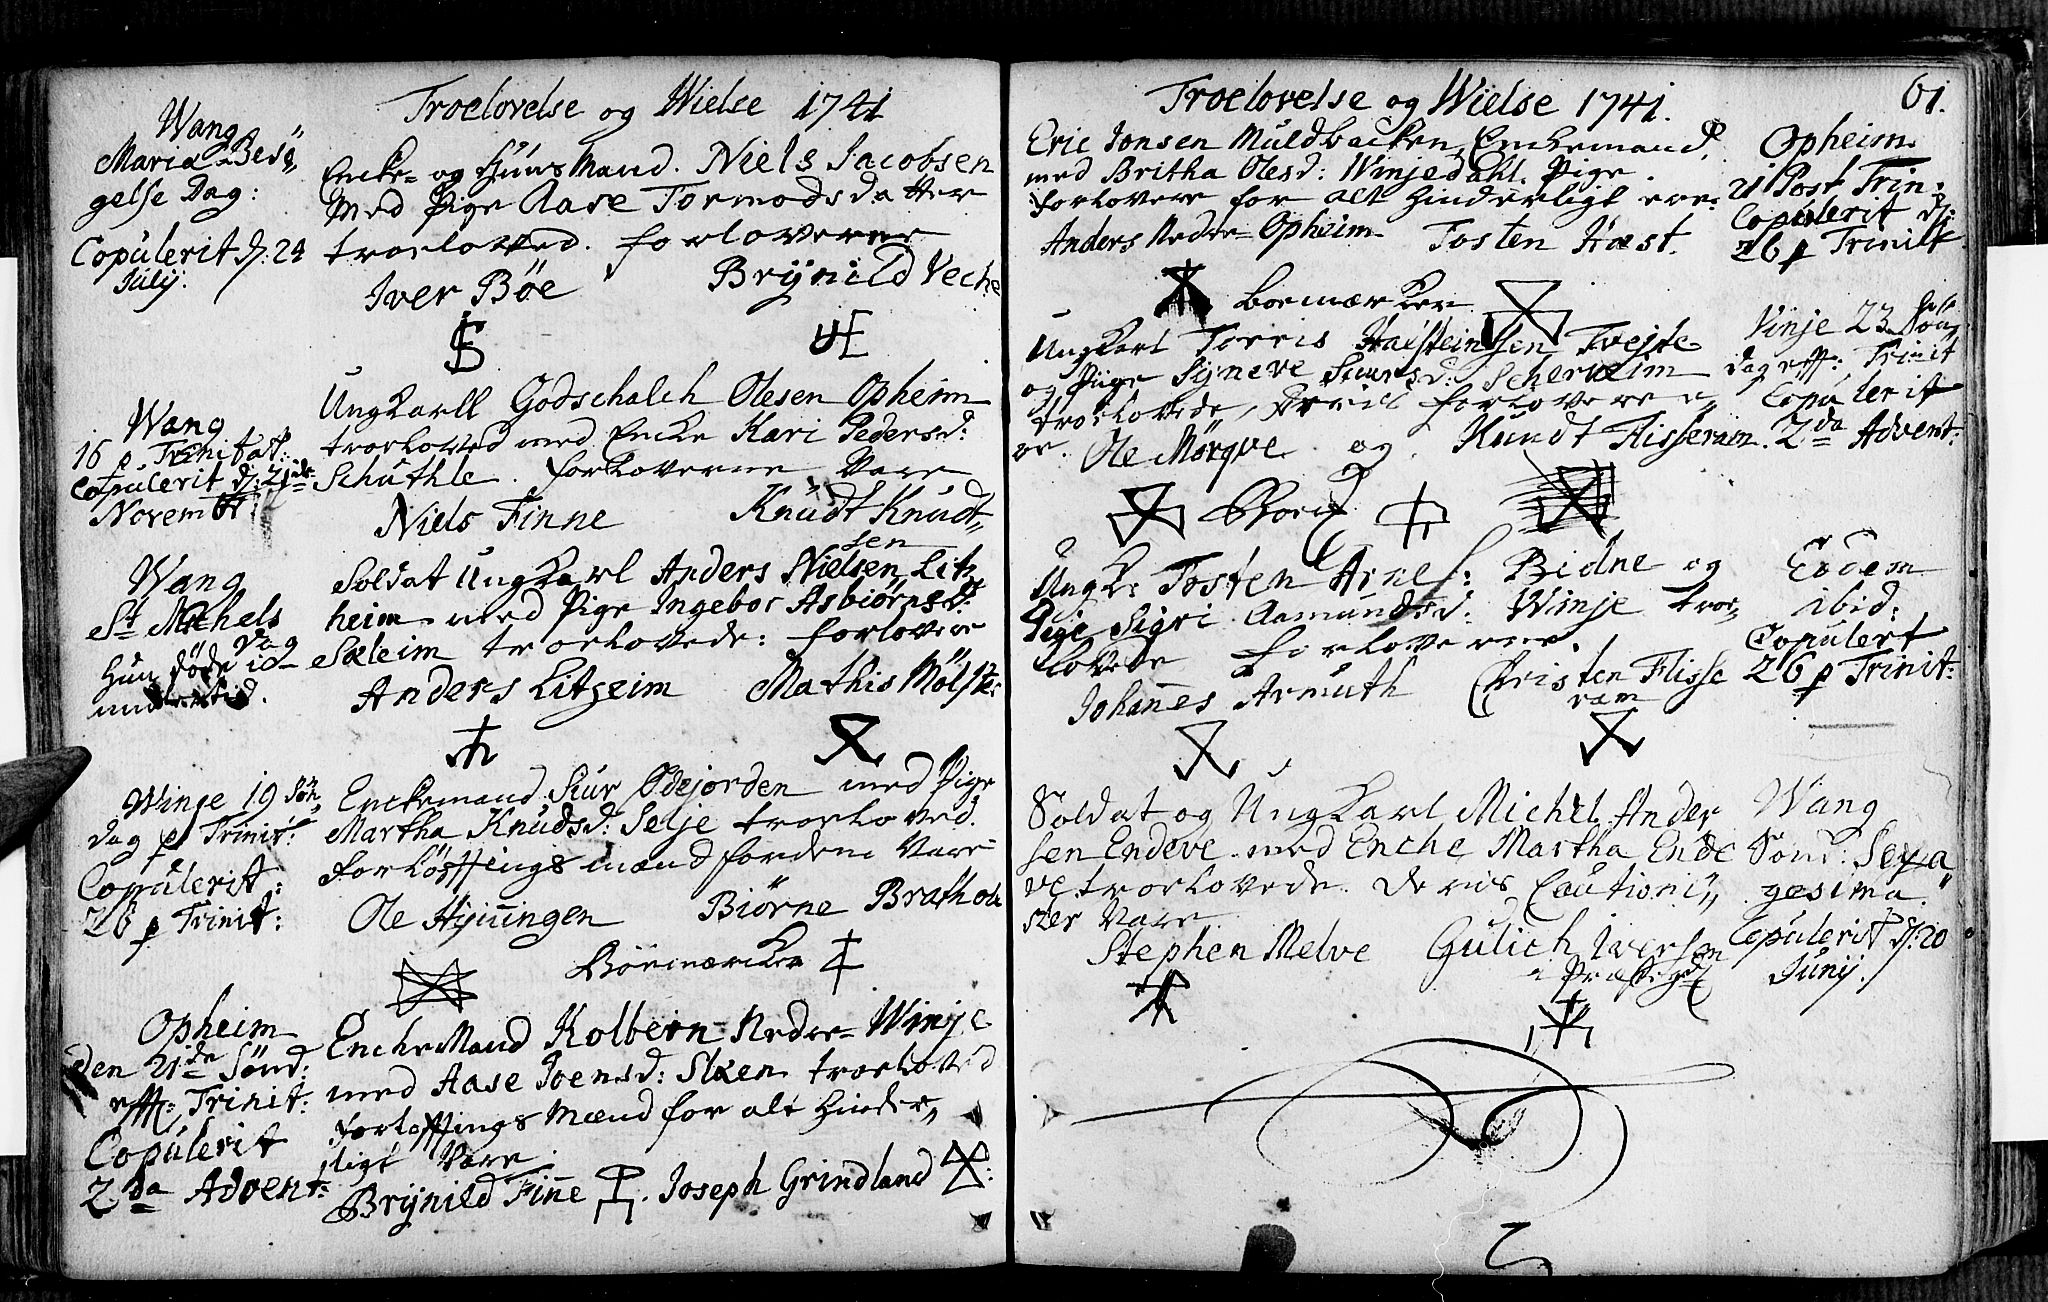 Troelovelse og Wielse 1741
Wang
Maria Besö„
gelse Dag:
Copulerit d: 24
Julij.
Encke- og Huus Mand. Niels Jacobsen
Med Pige Aase Tormodsdatter
troeloved. forloverne
Iver Böe Brÿnild Veche
Wang
16 p. Trinitat:
Copulerit d: 21de
Novemb:
Ungkarll Godschalch Olesen Opheim
troeloved med Encke Kari Pedersd:
Schuthle. forloverne Vare
Niels Finne Knudt Knudt„
sen
Wang
St. Michels
Dag
Hun döde id
Soldat Ungkarl Anders Nielsen Lit„
heim med Pige Ingebor Asbiörnsd:
Sæleim troelovede: forlovere
Anders Litheim Mathis Mölste:
Winje 19 Sön„
dag p Trinit:
Copulerit:
26 p Trinit:
Enckemand Siur Ödejorden med Pige
Martha Knudsd: Selje troeloved.
forlöfftings mænd fordem Vare
Ole Hÿnningen Biörne Brathole
Börmærcker
Opheim
den 21de Sönd:
eff: Trinit:
Copulerit
2da Advent:
Enche Mand Kolbern Nedre- Winje
med Aase Joensd: Slæen troeloved
forlofftings Mænd for alt Hinder„
ligt Vare
Brÿnild Finne. Joseph Grindland:
61.
Troelovelse og Wielse 1741.
Eric Jonsen Muldbacken, Enckemand,
med Britha Olesd: Winjedahl. Pige.
forlovere for alt Hinderligt ere:
Anders Nedre- Opheim Tosten Hæst.
Boemærcker
Opheim
21 Post Trin:
Copulerit d:
26 p Trinit
Ungkarl Torris Halsteinsen Tvejte
og Pige Sÿneve Siursd: Scherveim
troelovede, forlovere
re. Ole Mörqve og Knudt Flisseram.
Vinje 23 Sön„
dag eff: Trinit
Copulerit
2da Advent:
Ungk: Tosten Arnes: Bidne og
Pige Sigri Aamundsd: Winje troe„
lovede forloverne.
Johannes Armuth Christen Flisse
ram
Eodem
ibid:
Copulert
26 p Trinit:
Soldat og Ungkarl Michel Ander
sen Endeve med Enche Martha Ende
ve troelovede. Deris Cautioni„
ster Vare
Stephen Melve Gulich Iversen
Præsteg:
Wang
Sönd: Sexa
gesima.
Copulerit d: 20
Junij.